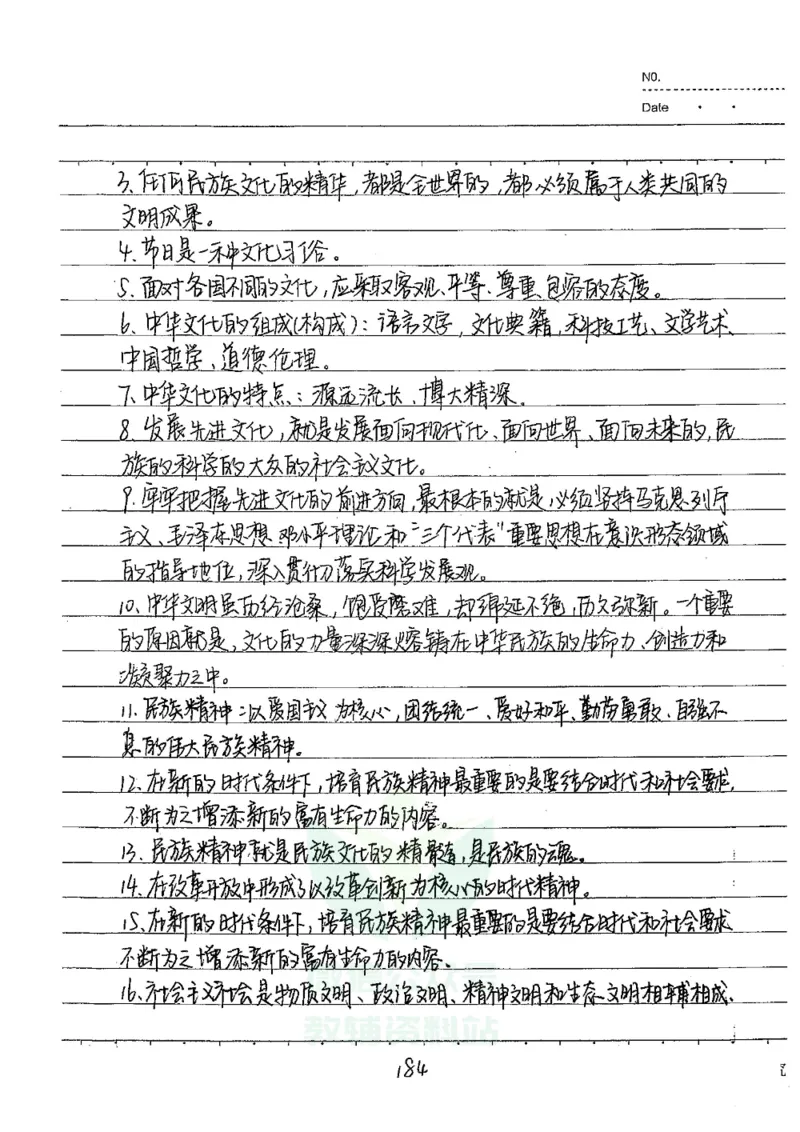 NO.
Date
3. 任何民族文化的精华,都是全世界的,都必须属于人类共同的
文明成果。
4. 节日是一种文化习俗。
5. 面对各国不同的文化,应采取客观、平等、尊重、包容的态度。
6. 中华文化的组成(构成):语言文字,文化典籍,科技工艺、文学艺术、
中国哲学、道德伦理。
7. 中华文化的特点:源远流长、博大精深。
8. 发展先进文化,就是发展面向现代化、面向世界、面向未来的,民
族的科学的大众的社会主义文化。
9. 牢牢把握先进文化的前进方向,最根本的就是,必须坚持马克思列宁
主义、毛泽东思想、邓小平理论和“三个代表”重要思想在意识形态领域
的指导地位,深入贯彻落实科学发展观。
10. 中华文明虽历经沧桑,饱受磨难,却绵延不绝,历久弥新。一个重要
的原因就是,文化的力量深深熔铸在中华民族的生命力、创造力和
凝聚力之中。
11. 民族精神:以爱国主义为核心,团结统一、爱好和平、勤劳勇敢、自强不
息的伟大民族精神。
12. 在新的时代条件下,培育民族精神最重要的是要结合时代和社会要求,
不断为之增添新的富有生命力的内容。
13. 民族精神就是民族文化的精髓,是民族的魂。
14. 在改革开放中形成了以改革创新为核心的时代精神。
15. 在新的时代条件下,培育民族精神最重要的是要结合时代和社会要求
不断为之增添新的富有生命力的内容。
16. 社会主义社会是物质文明、政治文明、精神文明和生态文明相辅相成、
教辅资料站
184